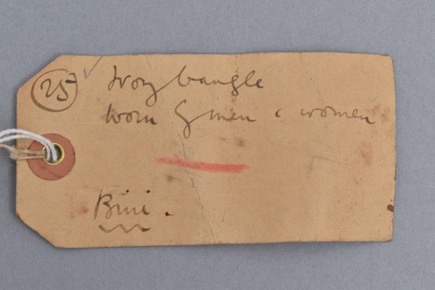 25 Ivory bangle
worn by men & women
Bini.